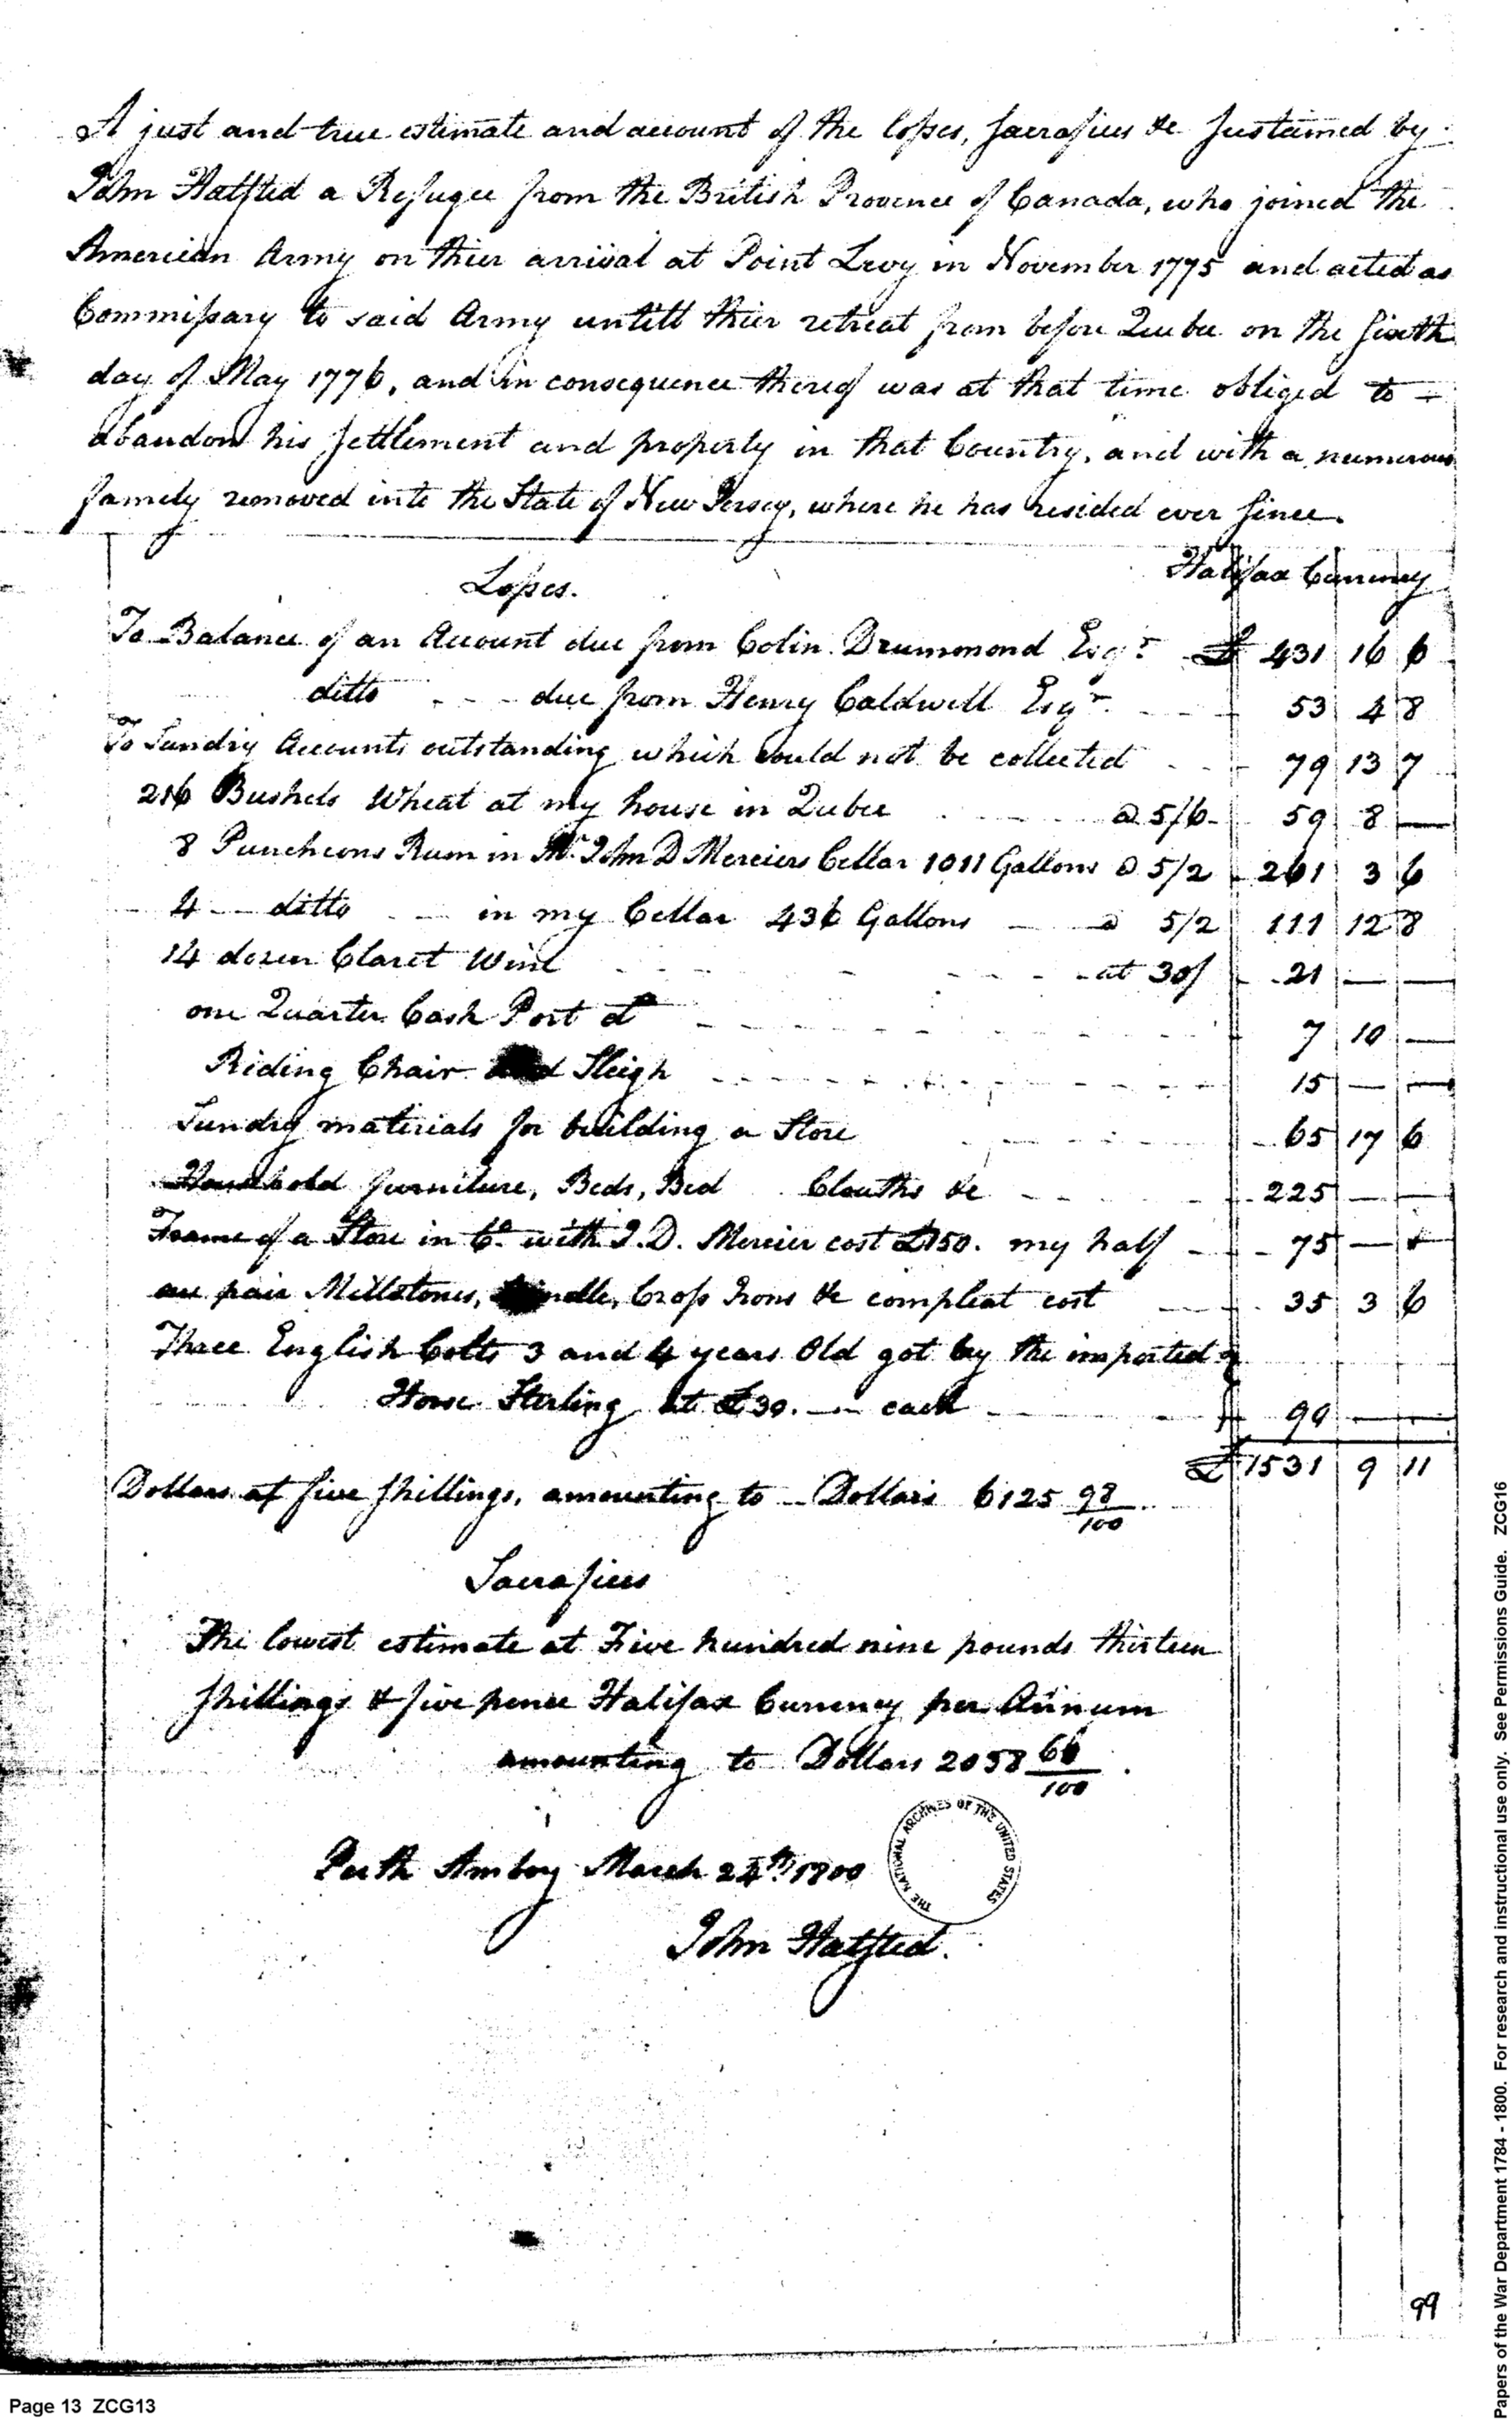 A just and true estimate and account of the losses, sacrafices &c sustained by
John Halsted a Refugee from the British Provence of Canada, who joined the
American Army on thier arrival at Point Levy in November 1775 and acted as
Commissary to said Army untill thier retreat from before Quebec on the sixth
day of May 1776, and in consequence thereof was at that time obliged to
abandon his settlement and property in that Country, and with a numerous
family removed into the State of New Jersey, where he has resided ever since.
Losses. Halifax Currency
To Balance of an Account due from Colin Drummond Esqr. £ 431 16 6
ditto due from Henry Caldwell Esqr. 53 4 8
To Sundry Accounts outstanding which could not be collected 79 13 7
216 Bushels Wheat at my house in Quebec @ 5/6 59 8 —
8 Puncheons Rum in Mr. John D Merciers Cellar 1011 Gallons @ 5/2 261 3 6
4 ditto in my Cellar 436 Gallons @ 5/2 111 12 8
14 dozen Claret Wine at 30/ 21 — —
one Quarter Cask Port do 7 10 —
Riding Chair and Sleigh 15 — —
Sundry materials for building a Store 65 17 6
Household furniture, Beds, Bed Cloaths &c 225 — —
Frame of a Store in Co. with J. D. Mercier cost £150. my half 75 — —
one pair Millstones, Spindle, Cross Irons &c compleat cost 35 3 6
Three English Colts 3 and 4 years Old got by the imported
Horse Sterling at £30. — each 90 — —
£ 1531 9 11
Dollars at five shillings, amounting to Dollars 6125 98/100
Sacrafices
The lowest estimate at Five hundred nine pounds thirteen
shillings & five pence Halifax Currency per Annum
amounting to Dollars 2038 66/100.
Perth Amboy March 24th. 1800
THE NATIONAL ARCHIVES OF THE UNITED STATES
John Halsted.
99
Page 13 ZCG13
Papers of the War Department 1784 - 1800. For research and instructional use only. See Permissions Guide. ZCG16